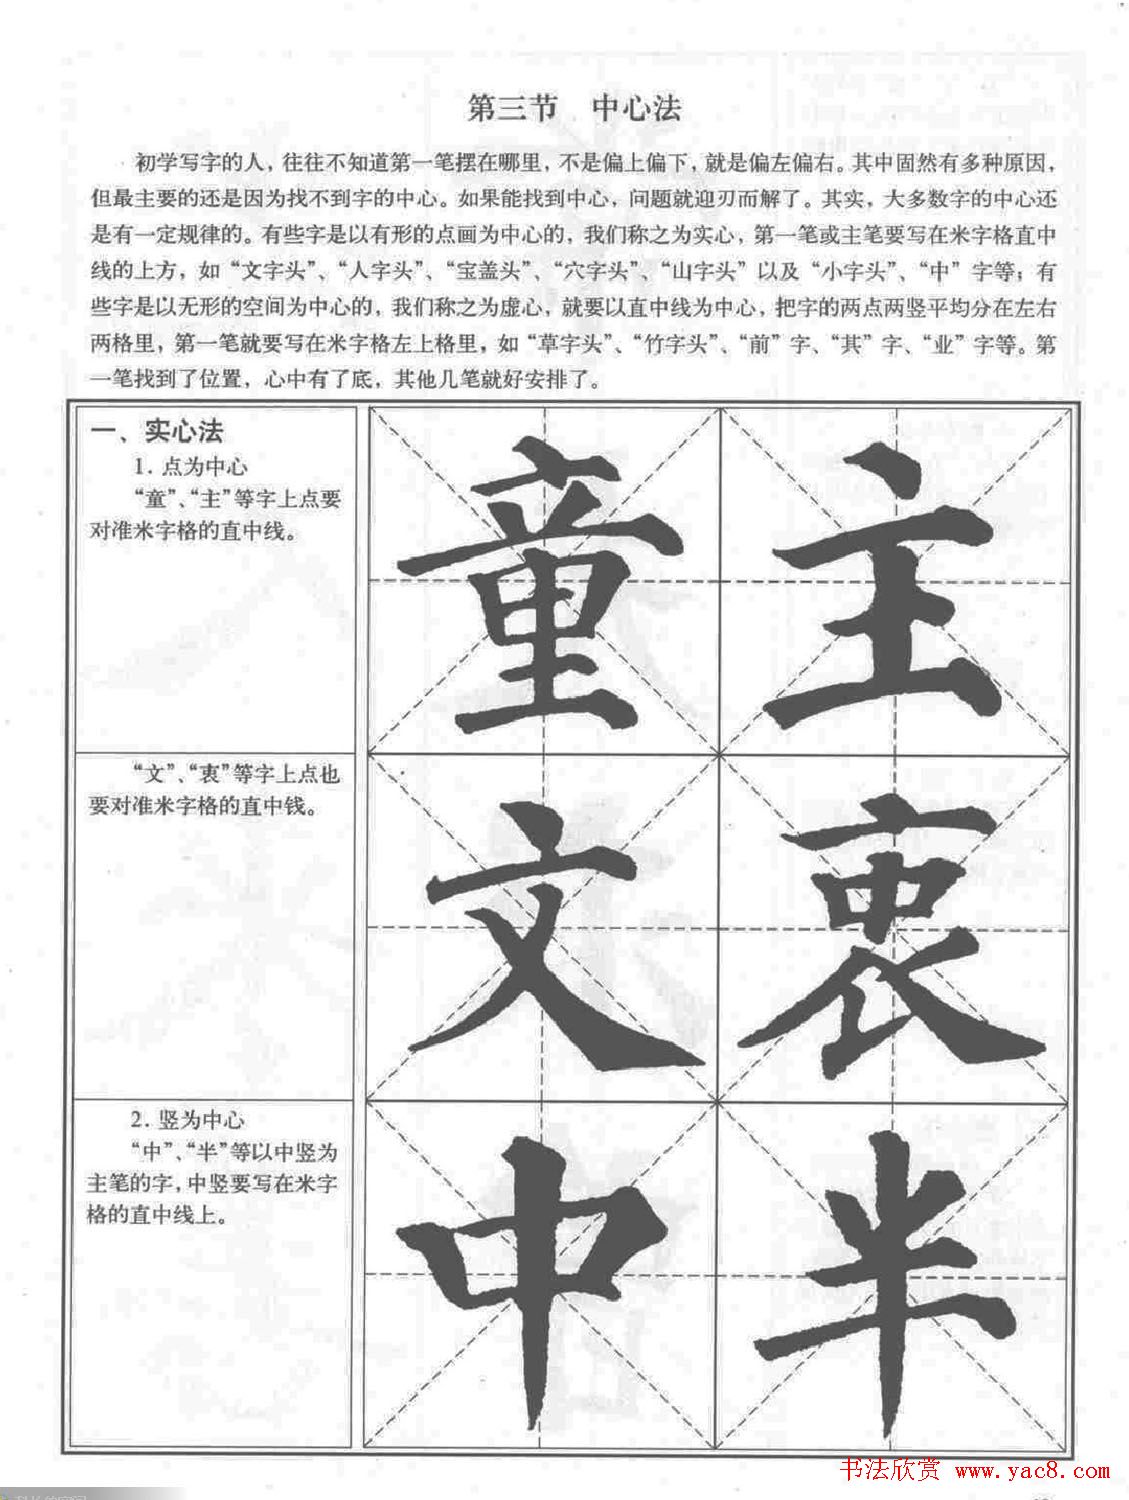 第三节 中心法
初学写字的人，往往不知道第一笔摆在哪里，不是偏上偏下，就是偏左偏右。其中固然有多种原因，
但最主要的还是因为找不到字的中心。如果能找到中心，问题就迎刃而解了。其实，大多数字的中心还
是有一定规律的。有些字是以有形的点画为中心的，我们称之为实心，第一笔或主笔要写在米字格直中
线的上方，如“文字头”、“人字头”、“宝盖头”、“穴字头”、“山字头”以及“小字头”、“中”字等；有
些字是以无形的空间为中心的，我们称之为虚心，就要以直中线为中心，把字的两点两竖平均分在左右
两格里，第一笔就要写在米字格左上格里，如“草字头”、“竹字头”、“前”字、“其”字、“业”字等。第
一笔找到了位置，心中有了底，其他几笔就好安排了。
一、实心法
1. 点为中心
“童”、“主”等字上点要
对准米字格的直中线。
童 主
“文”、“衷”等字上点也
要对准米字格的直中钱。
文 衷
2. 竖为中心
“中”、“半”等以中竖为
主笔的字，中竖要写在米字
格的直中线上。
中 半
书法欣赏 www.yac8.com